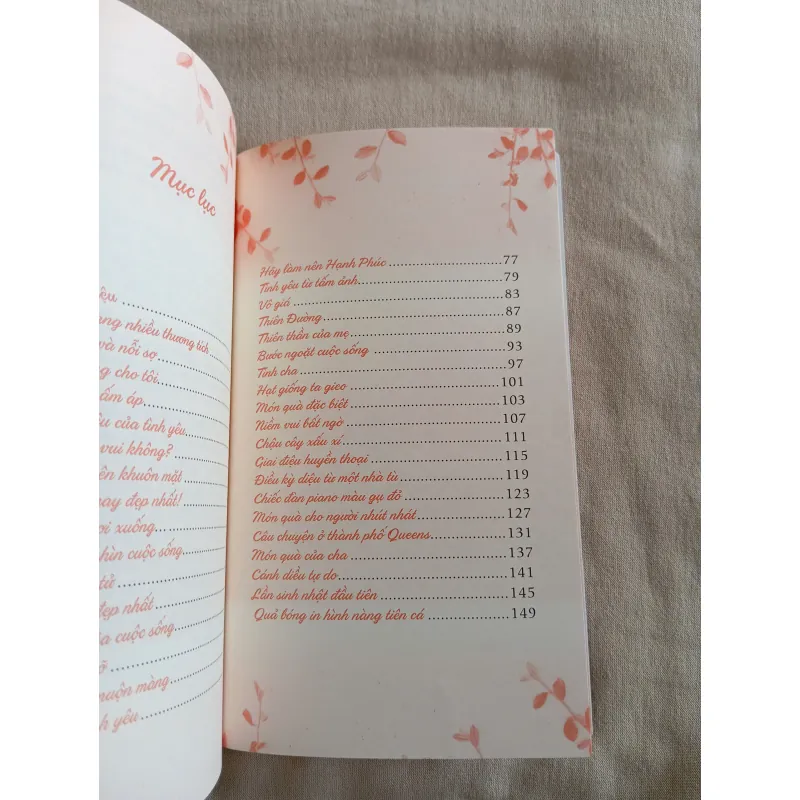 Mục lục
nhiều thương tích
và nỗi sợ
cho tôi
ấm áp
của tình yêu
vui không?
khuôn mặt
hay đẹp nhất!
xuống
nhìn cuộc sống
đẹp nhất
cuộc sống
muộn màng
yêu
Hãy làm nên Hạnh Phúc 77
Tình yêu từ tấm ảnh 79
Vô giá 83
Thiên Đường 87
Thiên thần của mẹ 89
Bước ngoặt cuộc sống 93
Tình cha 97
Hạt giống ta gieo 101
Món quà đặc biệt 103
Niềm vui bất ngờ 107
Chậu cây xấu xí 111
Giai điệu huyền thoại 115
Điều kỳ diệu từ một nhà tù 119
Chiếc đàn piano màu gụ đỏ 123
Món quà cho người nhút nhát 127
Câu chuyện ở thành phố Queens 131
Món quà của cha 137
Cánh diều tự do 141
Lần sinh nhật đầu tiên 145
Quả bóng in hình nàng tiên cá 149